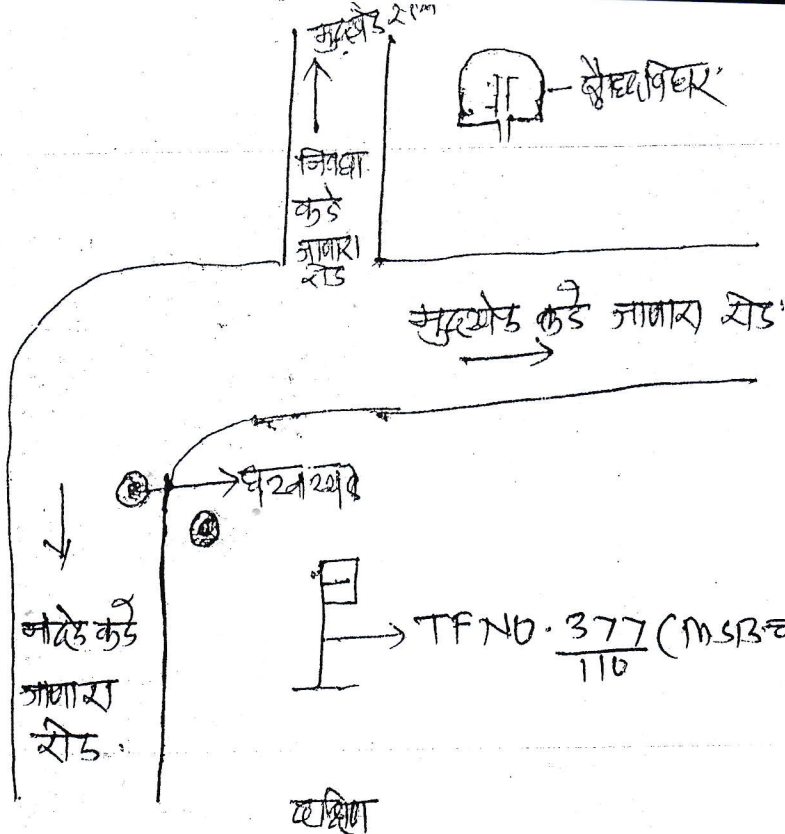 मुदखेड
बौद्धविहार
निवघा
कडे
जाणारा
रोड
मुदखेड कडे जाणारा रोड
घटनास्थळ
नांदेड कडे
जाणारा
रोड.
TF NO. 377/110 (MSB
दक्षिण